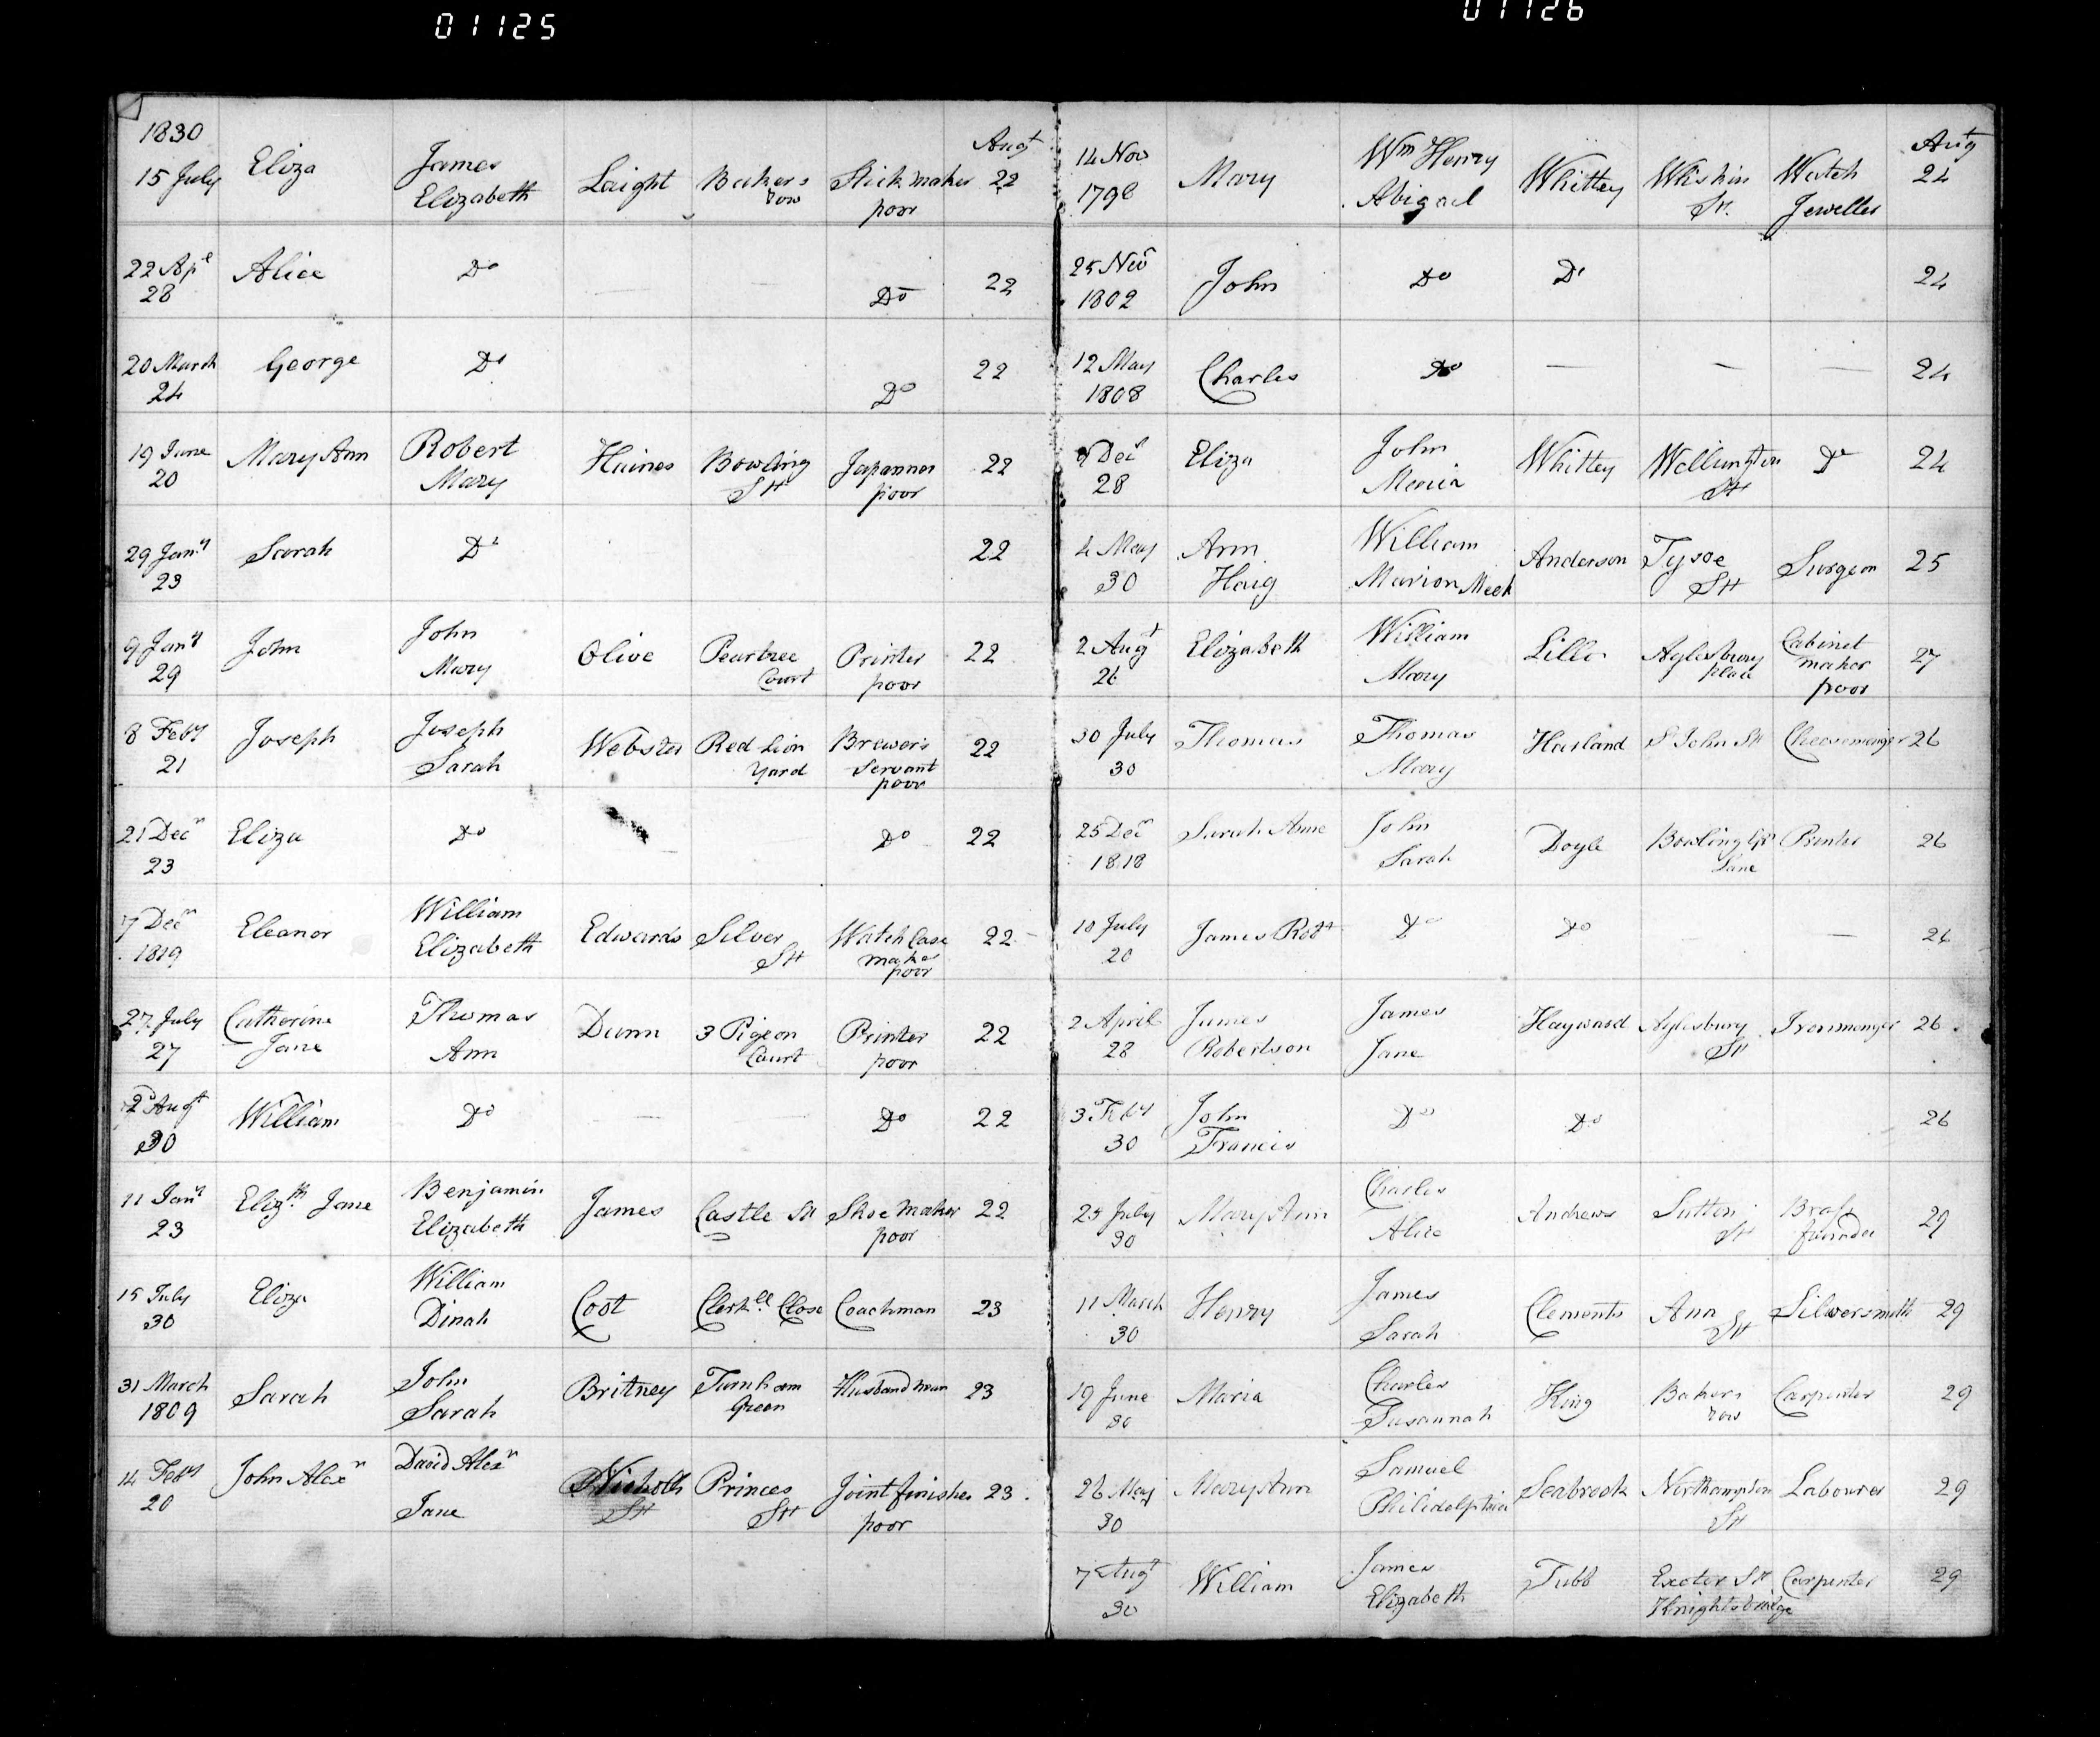 01125
01126
1830
15 July Eliza James Elizabeth Laight Bakers row Stick maker poor Augt 22
22 Apl 28 Alice Do Do 22
20 March 24 George Do Do 22
19 June 20 Mary Ann Robert Mary Haines Bowling St Japanner poor 22
29 Jany 23 Sarah Do 22
9 Jany 29 John John Mary Olive Peartree Court Printer poor 22
8 Feby 21 Joseph Joseph Sarah Webster Red Lion Yard Brewers Servant poor 22
21 Decr 23 Eliza Do Do 22
7 Decr 1819 Eleanor William Elizabeth Edwards Silver St Watch Case maker poor 22
27 July 27 Catherine Jane Thomas Ann Dunn 3 Pigeon Court Printer poor 22
2 Augt 30 William Do Do 22
11 Jany 23 Elizth Jane Benjamin Elizabeth James Castle St Shoe Maker poor 22
15 July 30 Eliza William Dinah Coot Clerkll Close Coachman 23
31 March 1809 Sarah John Sarah Britney Turnham Green Husbandman 23
14 Feby 20 John Alexr David Alexr Jane Nicholls St Princes St Joint finisher poor 23
14 Nov 1798 Mary Wm Henry Abigail Whittey Whiskin St. Watch Jeweller Augt 24
25 Nov 1802 John Do Do 24
12 May 1808 Charles Do 24
Decr 28 Eliza John Maria Whittey Wellington St Do 24
4 May 30 Ann Haig William Marion Meek Anderson Tysoe St Surgeon 25
2 Augt 26 Elizabeth William Mary Lillo Aylesbury place Cabinet maker poor 27
30 July 30 Thomas Thomas Mary Harland St John St Cheesemonger 26
25 Decr 1818 Sarah Anne John Sarah Doyle Bowling Gn Lane Printer 26
10 July 20 James Robt Do Do 26
2 April 28 James Robertson James Jane Hayward Aylesbury St Ironmonger 26
3 Feby 30 John Francis Do Do 26
25 July 30 Mary Ann Charles Alice Andrews Sutton St Brass founder 29
11 March 30 Henry James Sarah Clements Ann St Silversmith 29
19 June 30 Maria Charles Susannah King Bakers row Carpenter 29
26 May 30 Mary Ann Samuel Philidelphia Seabrook Northampton St Labourer 29
7 Augt 30 William James Elizabeth Tubb Exeter St Knightsbridge Carpenter 29